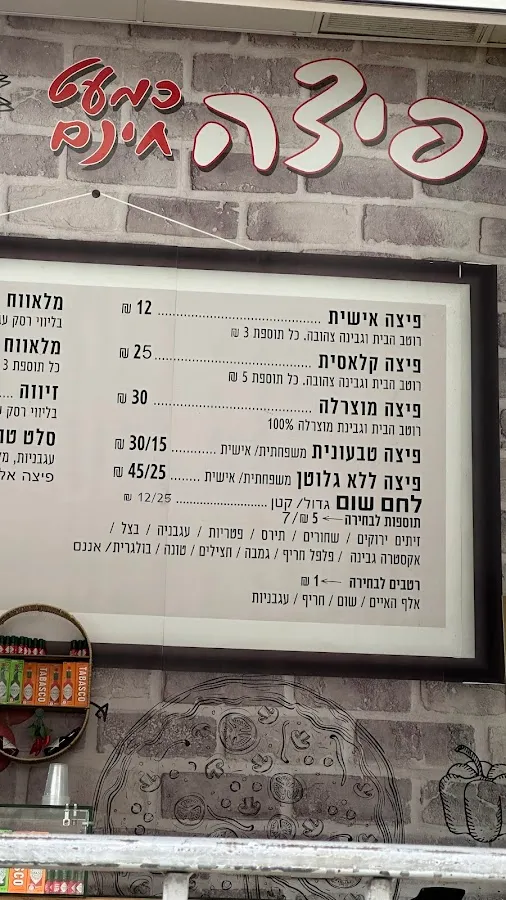 פיצה כמעט חינם
פיצה אישית ........................ 12 ₪
רוטב הבית וגבינה צהובה. כל תוספת 3 ₪
פיצה קלאסית ........................ 25 ₪
רוטב הבית וגבינה צהובה. כל תוספת 5 ₪
פיצה מוצרלה ........................ 30 ₪
רוטב הבית וגבינת מוצרלה 100%
פיצה טבעונית משפחתית/ אישית ............ 30/15 ₪
פיצה ללא גלוטן משפחתית/ אישית ........ 45/25 ₪
לחם שום גדול/ קטן ........................ 12/25 ₪
תוספות לבחירה ← 5 ₪/7
זיתים ירוקים / שחורים / תירס / פטריות / עגבניה / בצל /
אקסטרה גבינה / פלפל חריף / גמבה / חצילים / טונה / בולגרית/ אננס
רטבים לבחירה ← 1 ₪
אלף האיים / שום / חריף / עגבניות
מלאווח
בליווי רסק
מלאווח
כל תוספת 3
זיווה
בליווי רסק
סלט
עגבניות,
פיצה
TABASCO
TABASCO